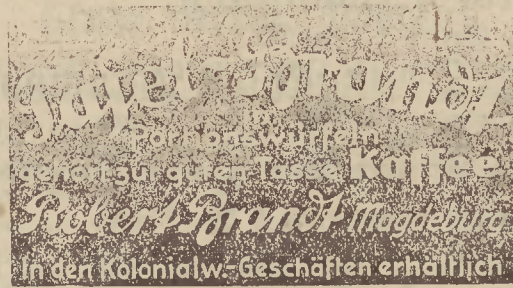 Tafel-Brandt
in
Portionswürfeln
gehört zur guten Tasse Kaffee
Robert Brandt Magdeburg
In den Kolonialw.-Geschäften erhältlich